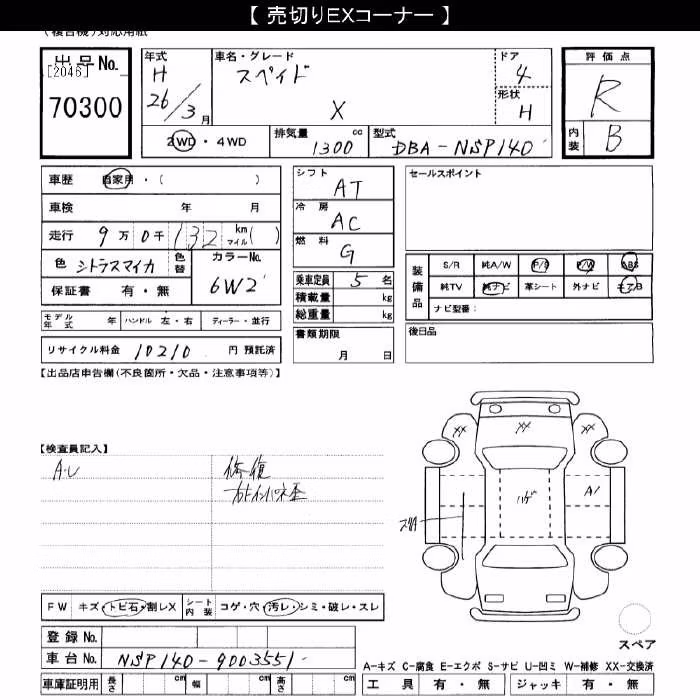 【 売切りEXコーナー 】
(複合機)対応用紙
出品No.
[2046]
70300
年式 H 26/3月
車名・グレード スペイド X
ドア 4
形状 H
評価点 R
内装 B
2WD・4WD
排気量 1300 cc
型式 DBA-NSP140
車歴 自家用・( )
車検 年 月
走行 9万0千132 km マイル( )
色 シトラスマイカ 色替 カラーNo. 6W2
保証書 有・無
モデル年式 年 ハンドル 左・右 ディーラー・並行
リサイクル料金 10210 円 預託済
シフト AT
冷房 AC
燃料 G
乗車定員 5 名
積載量 kg
総重量 kg
書類期限
月 日
セールスポイント
装備品
S/R 純A/W P/S P/W ABS
純TV 純ナビ 革シート 外ナビ エアB
ナビ型番:
後日品
【出品店申告欄(不良箇所・欠品・注意事項等)】
【検査員記入】
修復
XX XX XX
ハゲ
A1
FW キズ・トビ石・割レX
シート内装 コゲ・穴・汚レ・シミ・破レ・スレ
登録No.
車台No. NSP140-9003551
車庫証明用 長さ cm 幅 cm 高さ cm
スペア
A-キズ C-腐食 E-エクボ S-サビ U-凹ミ W-補修 XX-交換済
工具 有・無 ジャッキ 有・無